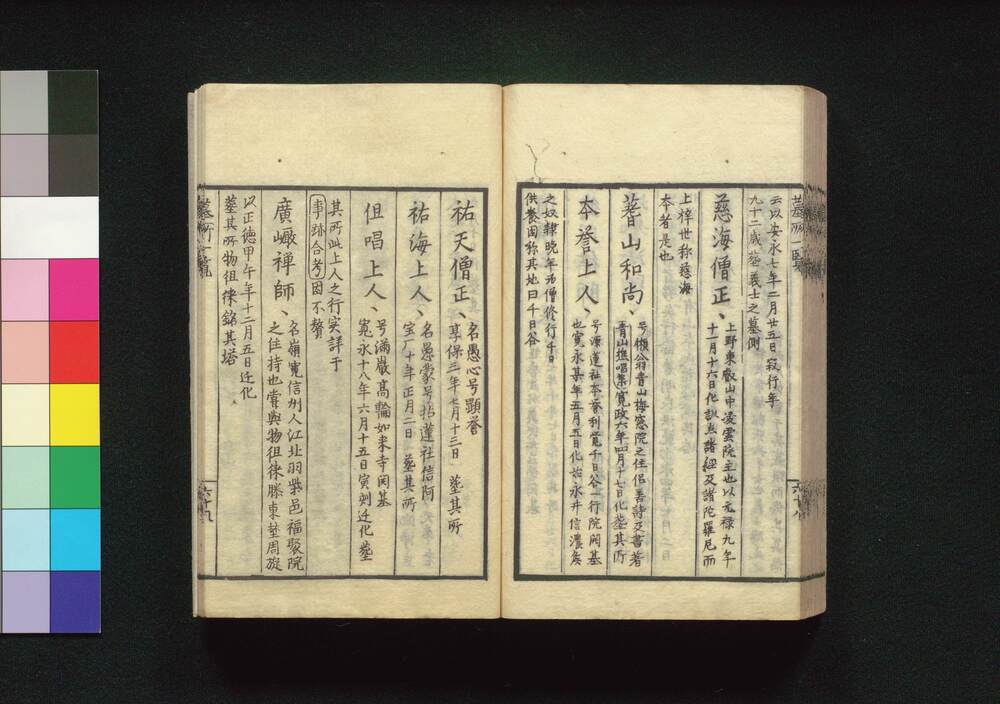 墓所一覧
云以安永七年二月廿五日寂行年
九十二歳葬義士之墓側
慈海僧正、
上野東叡山中凌雲院主也以元禄九年
十一月十六日化訓点諸経及諸陀羅尼而
上梓世称慈海
本者是也
蓍山和尚、
号懶翁青山梅窓院之住侶善詩及書著
青山樵唱集寛政六年四月十七日化葬其所
本誉上人、
号源蓮社本誉利覚千日谷一行院開基
也寛永某年五月五日化始永井信濃矦
之奴隷晩年為僧修行千日
供養因称其地曰千日谷
六十八
祐天僧正、
名愚心号顕誉
享保三年七月十三日 葬其所
祐海上人、
名愚蒙号拈蓮社信阿
宝厂十年正月二日 葬其所
但唱上人、
号満巌高輪如来寺開基
寛永十八年六月十五日寅刻迁化葬
其所此上人之行実詳于
事跡合考因不贅
廣巗禅師、
名嶺寛信刕人江北羽柴邑福聚院
之住持也嘗與物徂徠滕東埜周旋
以正徳甲午年十二月五日迁化
葬其所物徂徠銘其塔
墓所一覧
六十九